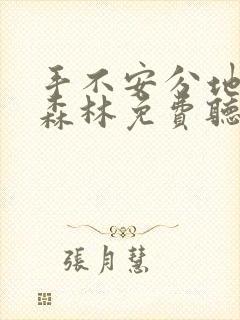 手不安分地
森林免費聽
張月慧